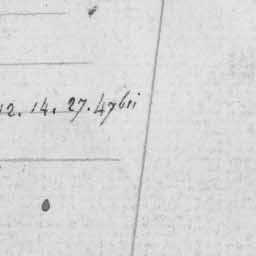 12. 14. 27. 47bis